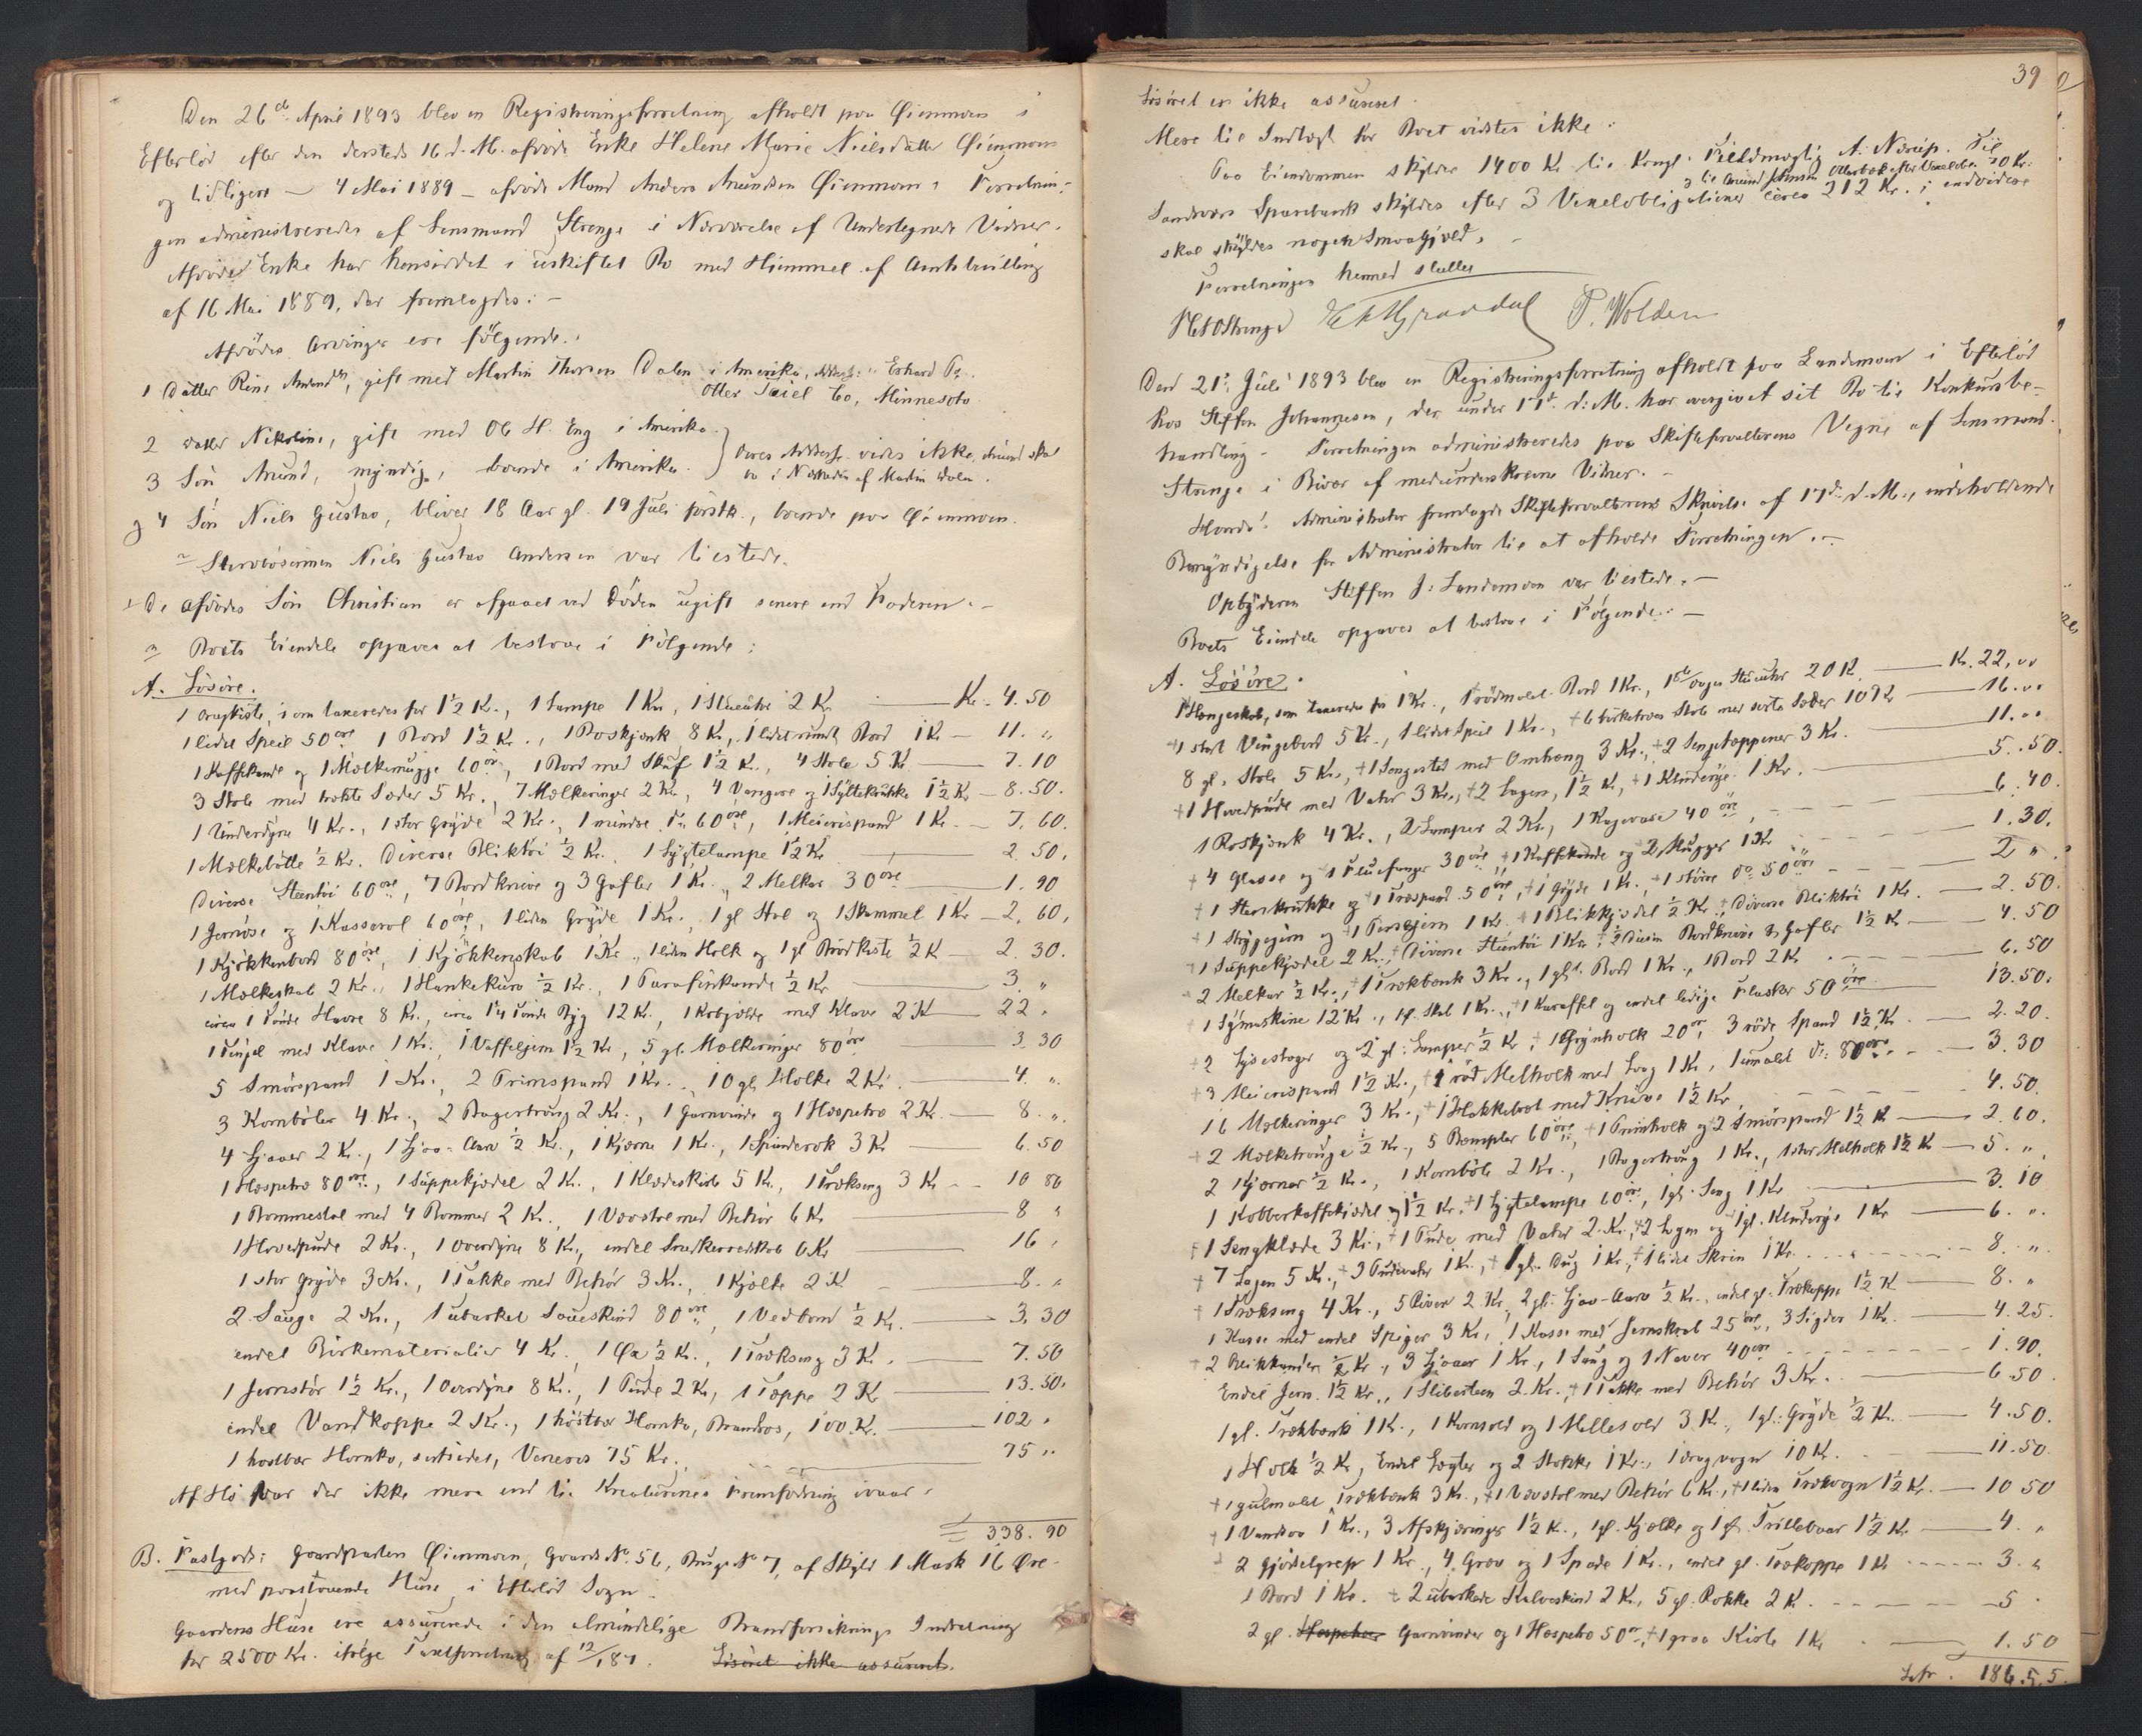 Den 26de April 1893 blev en Registreringsforretning afholdt paa Øienmoen i
Efterløt efter den dersteds 16 d. M. afdøde Enke Helene Marie Nielsdatter Øienmoen
og tidligere — 4 Mai 1889 — afdøde Mand Anders Amundsen Øienmoen. Forretnin-
gen administreredes af Lensmand Strenge i Nærværelse af Undertegnede Vidner.
Afdøde Enke har hensiddet i uskiftet Bo med Hjemmel af Amtsbevilling
af 16 Mai 1889, der fremlagdes. —
Afdødes Arvinger ere følgende:
1 Datter Rine, gift med Martin Thorsen Dalen i Amerika, Adresse: Erhard Po.
Otter Taiel Co, Minnesota
2 Datter Nikoline, gift med Ole H. Eng i Amerika.
3 Søn Amund, myndig, boende i Amerika. } Deres Adresse vides ikke. Amund skal
bo i Nærheden af Martin Dalen.
og 4 Søn Niels Gustav, bliver 18 Aar gl. 19 Juli førstk., boende paa Øienmoen.
Stervbosønnen Niels Gustav Andersen var tilstede.
De afdødes Søn Christian er afgaaet ved Døden ugift senere end Faderen. —
Boets Eiendele opgaves at bestaae i Følgende:
A. Løsøre.
1 Dragkiste, som taxeredes for 1½ Kr., 1 Lampe 1 Kr., 1 Stueuhr 2 Kr. — Kr. 4.50
1 lidet Speil 50 øre, 1 Bord 1½ Kr., 1 Roskjænk 8 Kr., 1 lidet rundt Bord 1 Kr — 11. "
1 Kaffekande og 1 Mælkemugge 60 øre, 1 Bord med Skuf 1½ Kr., 4 Stole 5 Kr — 7.10
3 Stole med trækte Sæder 5 Kr., 7 Mælkeringer 2 Kr., 4 og 1 Syltekrukke 1½ Kr — 8.50.
1 Underdyne 4 Kr., 1 stor Gryde 2 Kr., 1 mindre do 60 øre, 1 Meierispand 1 Kr. — 7.60.
1 Mælkebøtte ½ Kr. Diverse Bliktøi ½ Kr. 1 Lygtelampe 1½ Kr — 2.50.
Diverse Steentøi 60 øre, 7 Bordknive og 3 Gafler 1 Kr., 2 Melkar 30 øre — 1.90
1 Jerngryte og 1 Kasserol 60 øre, 1 liden Gryde 1 Kr., 1 gl Stol og 1 Skammel 1 Kr — 2.60.
1 Kjøkkenbord 80 øre, 1 Kjøkkenskab 1 Kr., 1 liden Holk og 1 gl Brødkiste ½ K — 2.30.
1 Mælkeskab 2 Kr., 1 Hankekurv ½ Kr., 1 Parafinkande ½ Kr — 3. "
circa 1 Tønde Havre 8 Kr., circa 1¼ Tønde Byg 12 Kr., 1 Kobjælde med Klave 2 K — 22 "
1 med Klave 1 Kr., 1 Vaffeljern 1½ Kr, 5 gl. Mælkeringer 80 øre — 3.30
5 Smørspand 1 Kr., 2 Primspand 1 Kr., 10 gl. Holke 2 Kr. — 4. "
3 Kornbøler 4 Kr., 2 Bagertroug 2 Kr., 1 Garnvinde og 1 Haspetræ 2 Kr. — 8. "
4 Ljaaer 2 Kr., 1 Ljaa-Aarv ½ Kr., 1 Kjærne 1 Kr., 1 Spinderok 3 Kr — 6.50
1 Haspetræ 80 øre, 1 Suppekjedel 2 Kr., 1 Klædeskab 5 Kr., 1 Træseng 3 Kr — 10 80
1 Bommestol med 4 Bommer 2 Kr., 1 Vævstol med Behør 6 Kr — 8 "
1 Hovedpude 2 Kr., 1 Overdyne 8 Kr., endel Snedkerredskab 6 Kr — 16 "
1 stor Gryde 3 Kr., 1 Takke med Behør 3 Kr., 1 Kjælke 2 K — 8. "
2 Sauge 2 Kr., 1 ubarket Saueskind 80 øre, 1 Vedbom ½ Kr. — 3.30
endel Birkematerialier 4 Kr., 1 Øx ½ Kr., 1 Træseng 3 K. — 7.50
1 Jernstør 1½ Kr., 1 Overdyne 8 Kr., 1 Pude 2 Kr, 1 Tæppe 2 Kr — 13.50.
endel Vandkoppe 2 Kr., 1 høstbær Hornko, Brandros, 100 Kr. — 102 "
1 høstbær Hornko, sortsidet, Veneros 75 Kr. — 75 "
Af Hø var der ikke mere end til Kreaturenes Fremfødning ivaar.
= 338.90
B. Fastgods: Gaardparten Øienmoen, Gaards No. 56, Brugs No 7, af Skyld 1 Mark 16 Øre
med paastaaende Huse, i Efterløt Sogn.
Gaardens Huse ere assurerede i den almindelige Brandforsikrings Indretning
for 2500 Kr. ifølge Taxtforretning af 12/1 87. Løsøret ikke assureret.
39
Løsøret er ikke assureret.
Mere til Indtægt for Boet vidstes ikke.
Paa Eiendommen skyldes 1400 Kr. til Kongl. Fuldmægtig A. Nørup. Til
og til Amund Johnsen Ollerbæk efter Vexelobl. 70 Kr.
Sandsvær Sparebank skyldes efter 3 Vexelobligationer circa 212 Kr.; endvidere
skal skyldes nogen Smaagjæld.
Forretningen hermed sluttet
Strenge P. Wolden
Den 21de Juli 1893 blev en Registreringsforretning afholdt paa Landemoen i Efterløt
hos Steffen Johannesen, der under 17de d. M. har overgivet sit Bo til Konkursbe-
handling. Forretningen administreredes paa Skifteforvalterens Vegne af Lensmand
Strenge i Bivær af medunderskrevne Vidner. —
Hvorda: Administrator fremlagde Skifteforvalterens Skrivelse af 17de d. M., indeholdende
Bemyndigelse for Administrator til at afholde Forretningen. —
Opbyderen Steffen J. Landemoen var tilstede. —
Boets Eiendele opgaves at bestaae i Følgende: —
A. Løsøre.
1 Hængeskab, som taxeredes for 1 Kr., 1 rødmalet Bord 1 Kr., 1 8te Dages Stueuhr 20 K. — Kr. 22."
+1 stort Vingebord 5 Kr., 1 lidet Speil 1 Kr., +6 birketræes Stole med sorte Sæder 10 Kr — 16."
8 gl. Stole 5 Kr., +1 Sengested med Omhæng 3 Kr., +2 Sengetæppener 3 Kr. — 11."
+1 Hovedpude med Vaar 3 Kr., +2 Lagen, 1½ Kr, +1 Klæderye 1 Kr. — 5.50.
1 Roskjænk 4 Kr., 2 Lamper 2 Kr., 1 Kagevase 40 øre — 6.40.
+4 Glasse og 1 Fluefanger 30 øre, +1 Kaffekande og 2 Mugger 1 Kr — 1.30.
+1 Steenkrukke og +1 Træspand 50 øre, +1 Gryde 1 Kr., +1 større do 50 øre — 2 "
+1 Strygejern og +1 Persejern 1 Kr. +1 Blikkjedel ½ Kr. + Diverse Bliktøi 1 Kr. — 2.50.
+1 Suppekjedel 2 Kr., + Diverse Steentøi 1 Kr. + ½ Dusin Bordknive & Gafler 1½ Kr — 4.50
2 Melkar ½ Kr., +1 Trækbænk 3 Kr., 1 gl. Bord 1 Kr., 1 Bord 2 Kr — 6.50
+1 Symaskine 12 Kr., 1 gl. Skab 1 Kr., +1 Karaffel og endel ledige Flasker 50 øre — 13.50.
+2 Lysestager og 2 gl. Lamper ½ Kr, +1 Grynholk 20 øre, 3 røde Spand 1½ Kr. — 2.20.
+3 Meierispand 1½ Kr., +1 rød Melholk med Laag 1 Kr., 1 umalet do 80 øre. — 3.30
16 Mælkeringer 3 Kr., +1 Hakkebræt med Kniv 1½ Kr — 4.50.
+2 Mælketrouge ½ Kr., 5 60 øre, +1 Primholk og +2 Smørspand 1½ K — 2.60.
2 Kjerner ½ Kr., 1 Kornbøle 2 Kr., 1 Bagertroug 1 Kr., 1 stor Melholk 1½ K — 5. "
1 Kobberkaffekjedel 1½ Kr. +1 Lygtelampe 60 øre, 1 gl. Seng 1 Kr — 3.10
+1 Sengklæde 3 Kr., +1 Pude med Vaar 2 Kr., +2 Lagen og 1 gl. Klæderye 1 Kr — 6. "
+7 Lagen 5 Kr., +3 Pudevaar 1 Kr., +1 gl. Dug 1 Kr., +1 lidet Skrin 1 Kr. — 8. "
+1 Træseng 4 Kr., 5 River 2 Kr, 2 gl. Ljaa-Aarv ½ Kr., endel gl. Trækoppe 1½ K — 8. "
1 Kasse med endel Spiger 3 Kr., 1 Kasse med Jernskrab 25 øre, 3 Sigder 1 Kr. — 4.25.
+2 Blikkander ½ Kr., 3 Ljaaer 1 Kr., 1 Saug og 1 Naver 40 øre — 1.90.
Endel Jern 1½ Kr., 1 Slibesteen 2 Kr., +1 Takke med Behør 3 Kr. — 6.50
1 gl. Trækbænk 1 Kr., 1 Kornsold og 1 Mellesold 3 Kr., 1 gl. Gryde ½ Kr. — 4.50.
1 Holk ½ Kr, Endel Lægter og 2 Stokke 1 Kr., 1 Dragvogn 10 Kr. — 11.50.
+1 gulmalet Trækbænk 3 Kr., +1 Vævstol med Behør 6 Kr., +1 liden Trækvogn 1½ Kr. — 10 50
+1 Vandsaa 1 Kr., 3 Afskjæringer 1½ Kr., 1 gl. Kjælke og 1 gl. Trillebaar 1½ Kr — 4. "
2 Gjødelgrep 1 Kr., 4 Grev og 1 Spade 1 Kr., endel gl. Trækoppe 1 Kr — 3. "
1 Bord 1 Kr. + 2 ubarkede Kalveskind 2 Kr., 5 gl. Rokke 2 K. — 5
2 gl. Haspetræer Garnvinder og 1 Haspetræ 50 øre, +1 graa Kiste 1 Kr — 1.50
Lat. 186.55.